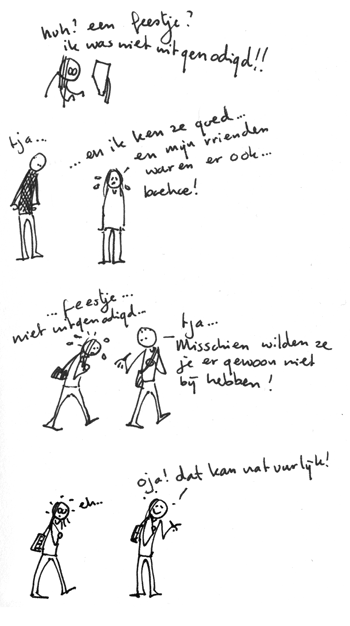 huh? een feestje?
ik was niet uitgenodigd!!
tja...
...en ik ken ze goed...
en mijn vrienden
waren er ook...
boehoe!
...feestje...
niet uitgenodigd...
tja...
Misschien wilden ze
je er gewoon niet
bij hebben!
eh...
oja! dat kan natuurlijk!